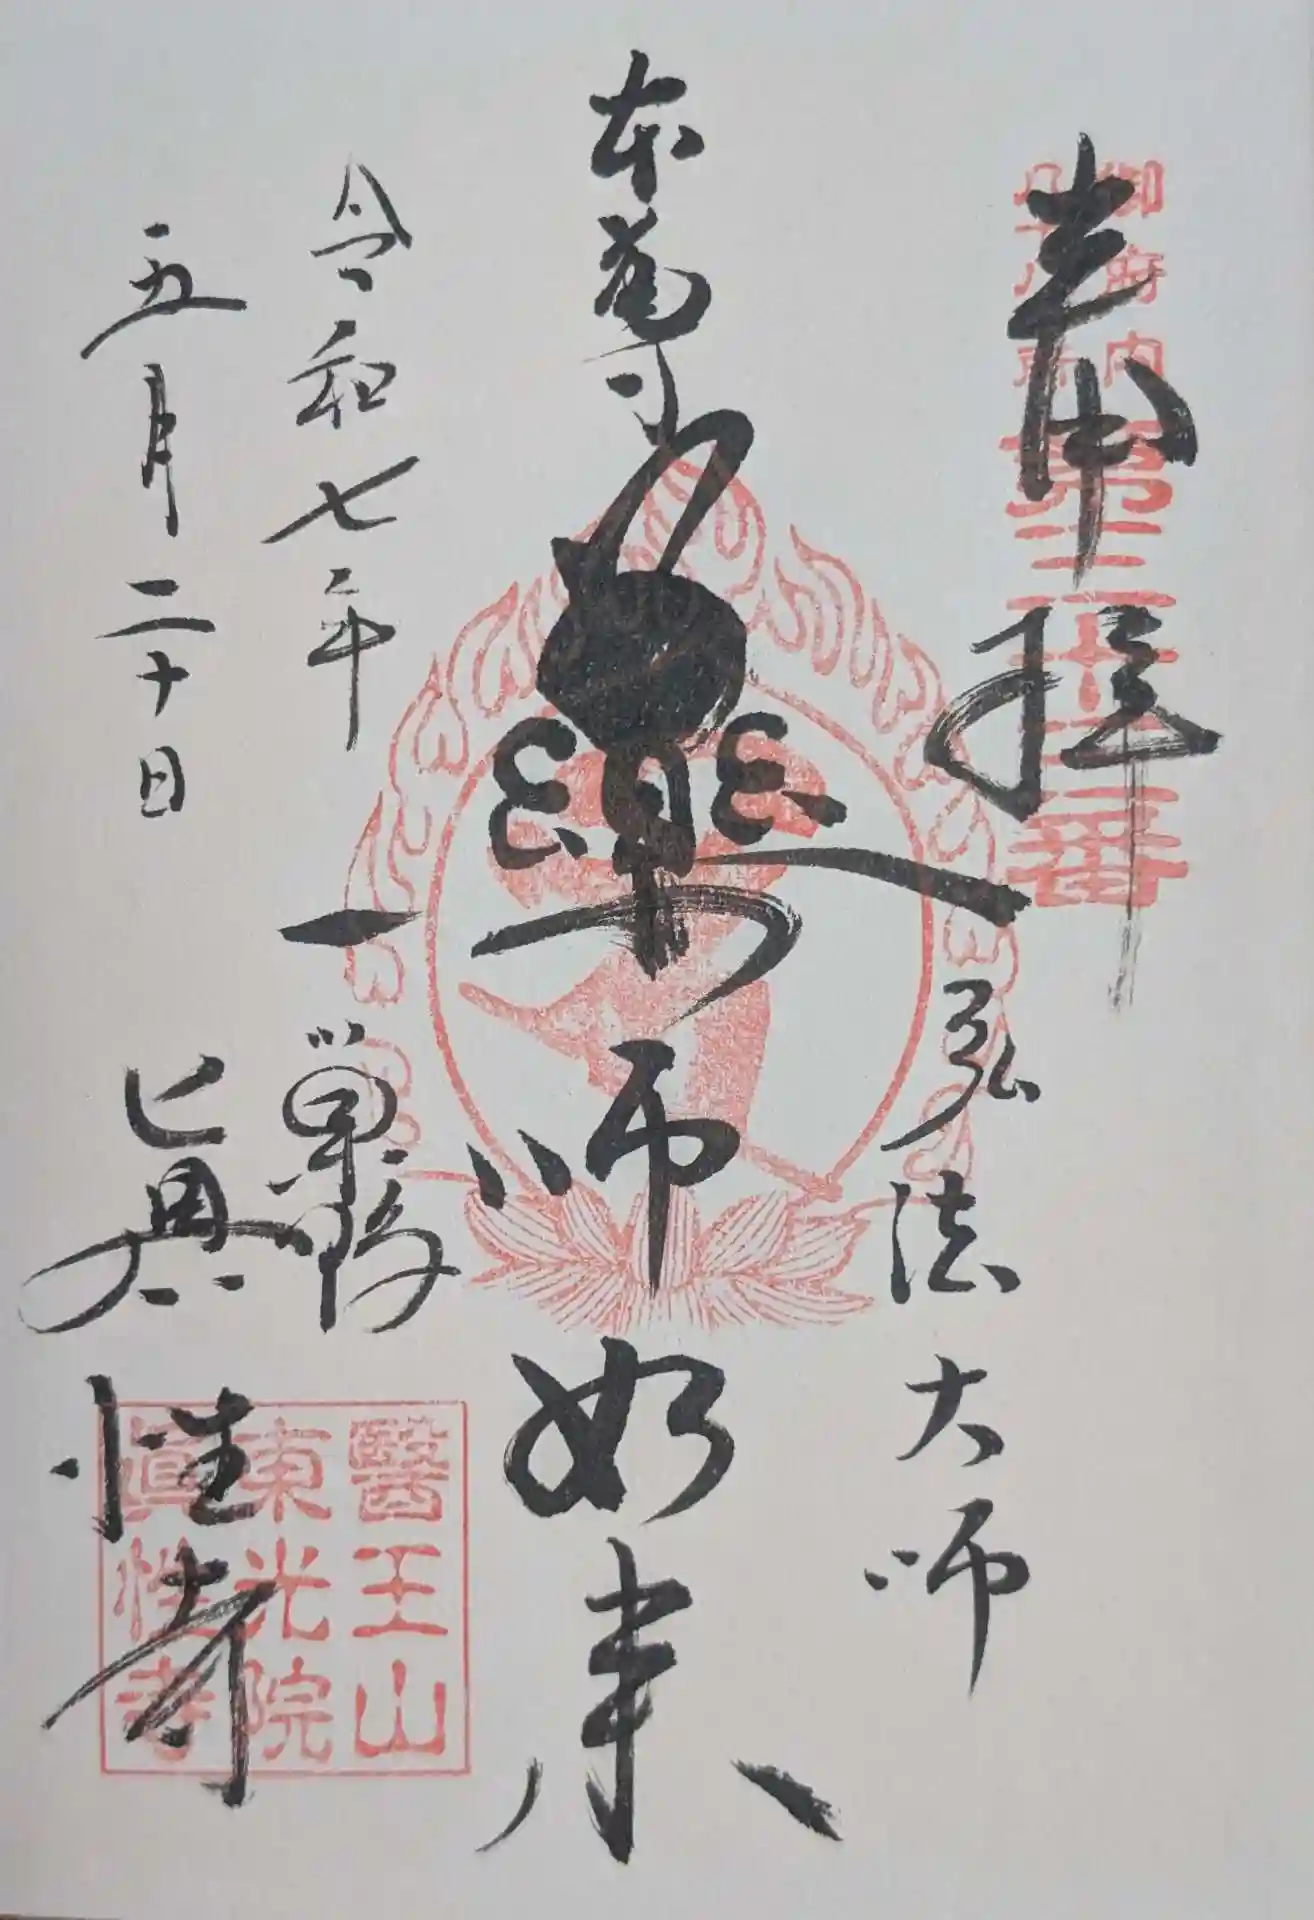 奉拝
御府内
八十八所
第三十三番
弘法大師
本尊
藥師如来
令和七年
五月二十日
一巣鴨
眞性寺
醫王山
東光院
眞性寺